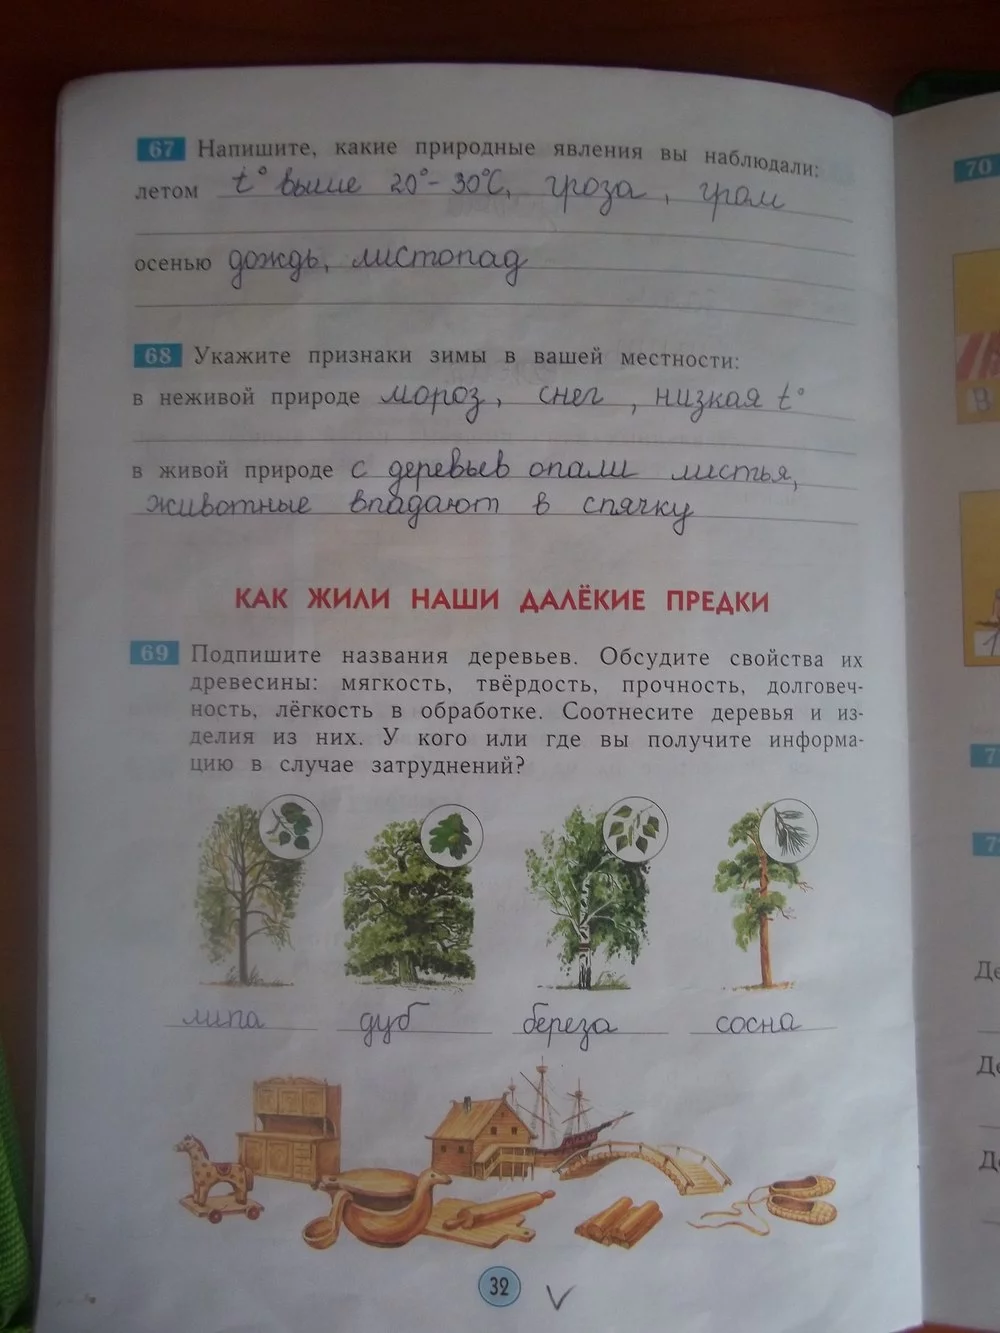 67 Напишите, какие природные явления вы наблюдали:
летом t° выше 20°-30°С, гроза, гром
осенью дождь, листопад
68 Укажите признаки зимы в вашей местности:
в неживой природе мороз, снег, низкая t°
в живой природе с деревьев опали листья,
животные впадают в спячку
КАК ЖИЛИ НАШИ ДАЛЁКИЕ ПРЕДКИ
69 Подпишите названия деревьев. Обсудите свойства их
древесины: мягкость, твёрдость, прочность, долговеч-
ность, лёгкость в обработке. Соотнесите деревья и из-
делия из них. У кого или где вы получите информа-
цию в случае затруднений?
липа дуб береза сосна
32
70
В
7
7
Де
Де
Де